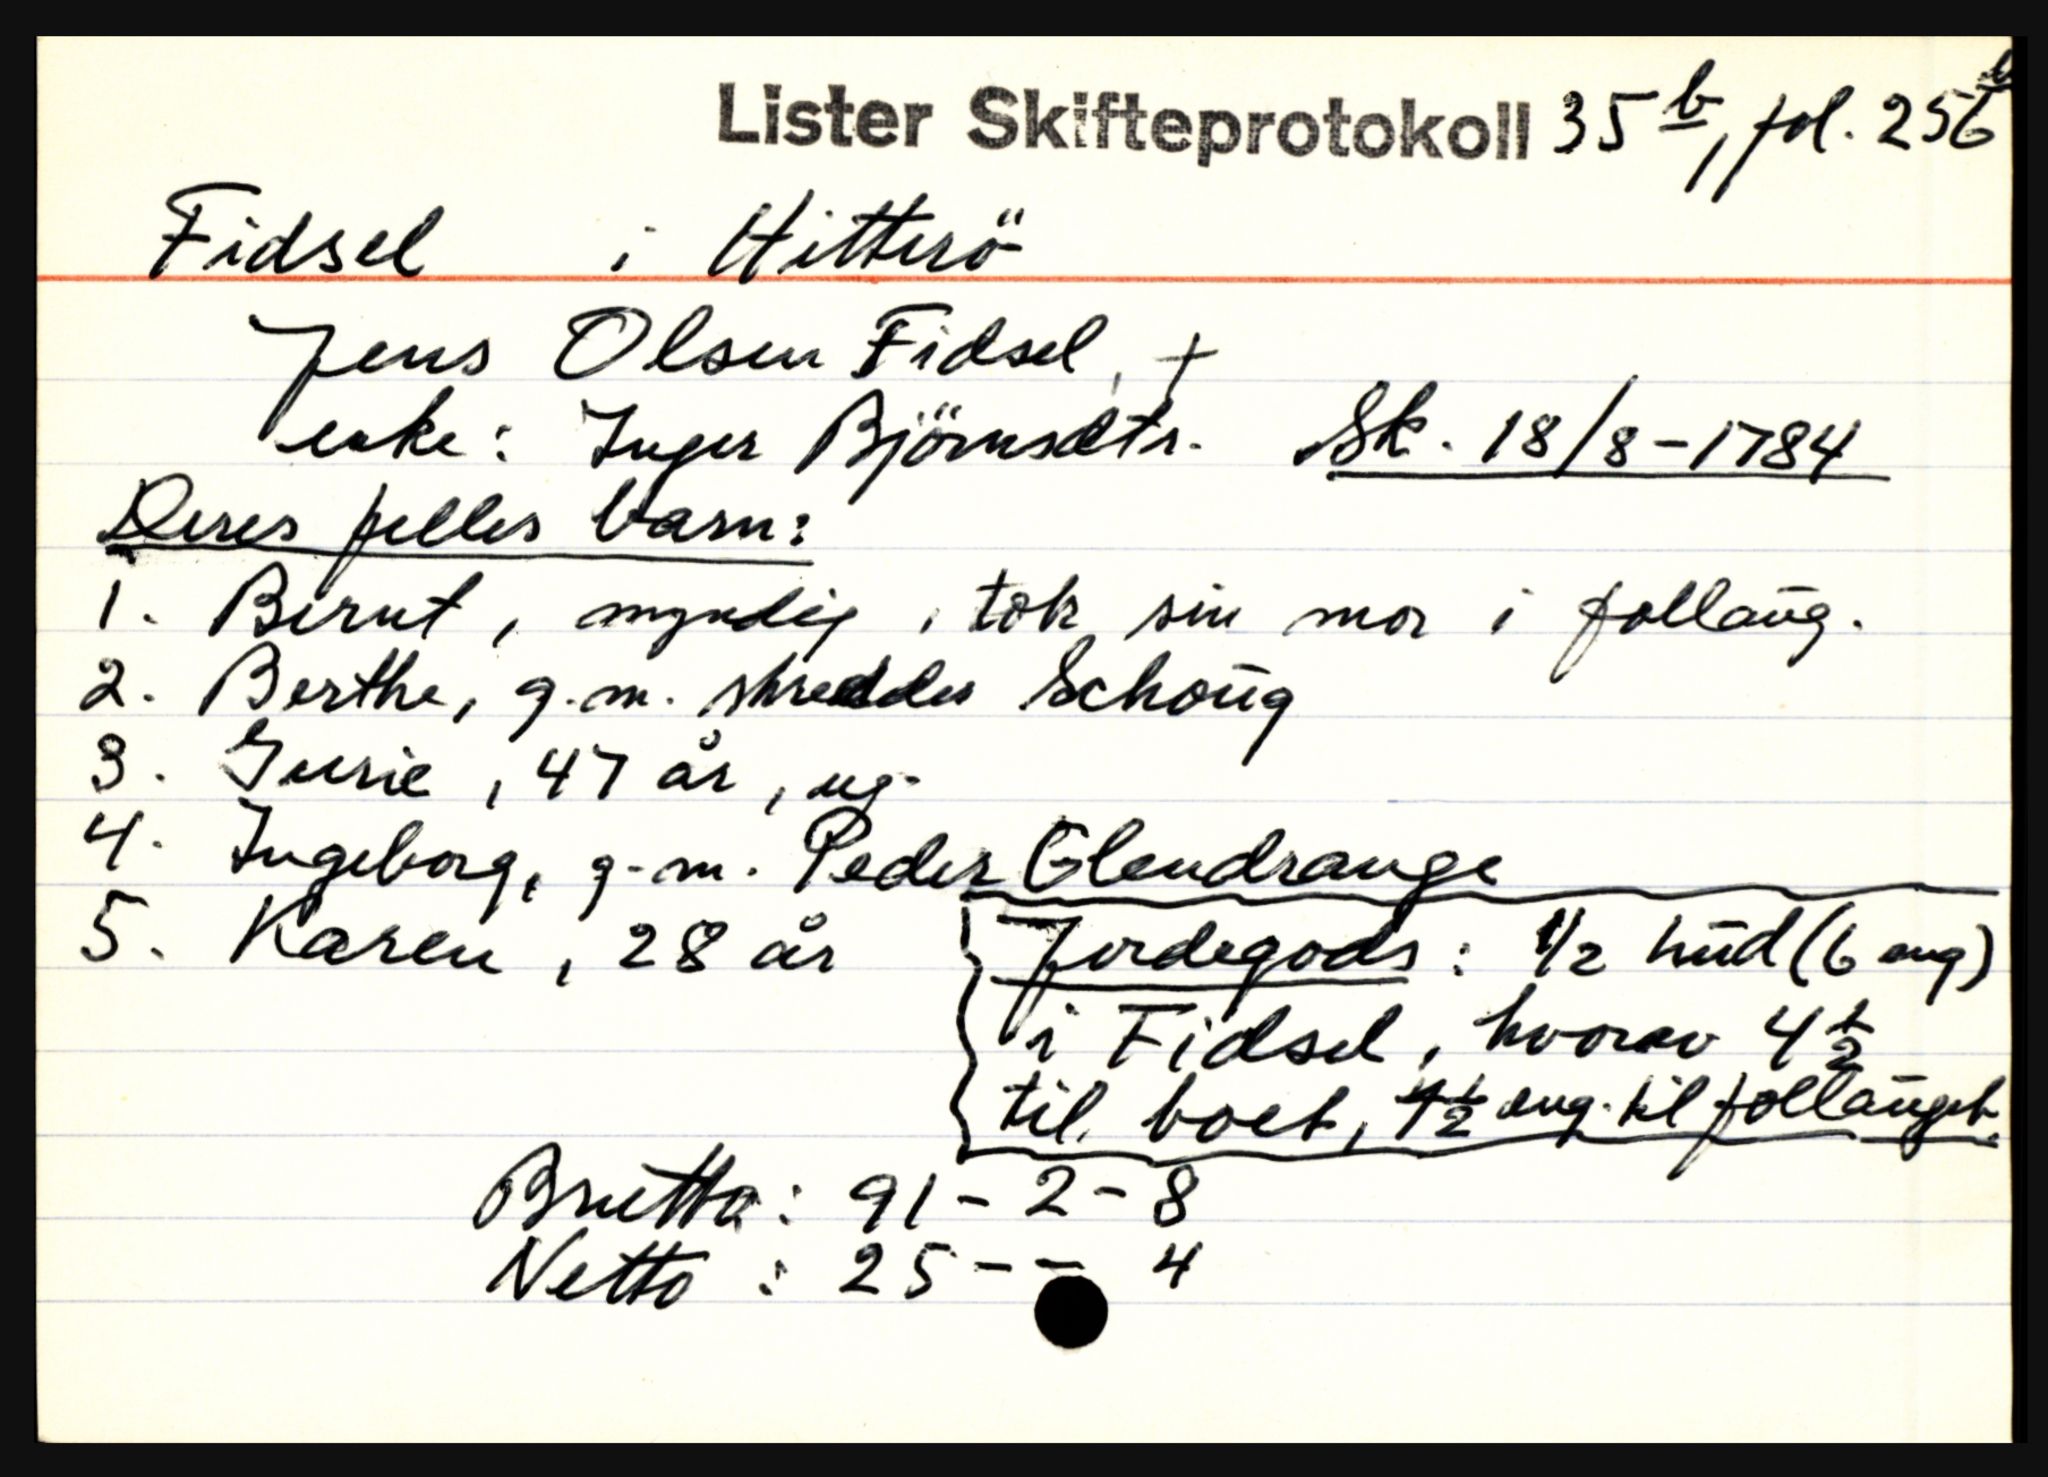 Lister Skifteprotokoll 35 b, fol. 256 b
Fidsel i Hitterö
Jens Olsen Fidsel, +
enke: Inger Björnsdtr. Sk. 18/8-1784
Deres felles barn:
1. Berut, myndig, tok sin mor i follaug.
2. Berthe, g.m. skredder Schoug
3. Gurie, 47 år, ug.
4. Ingeborg, g.m. Peder Glendrange
5. Karen, 28 år
Jordegods: 1/2 hud (6 eng)
i Fidsel, hvorav 4 1/2
til boet, 1 1/2 eng. til follauget.
Brutto: 91 - 2 - 8
Netto: 25 - - 4